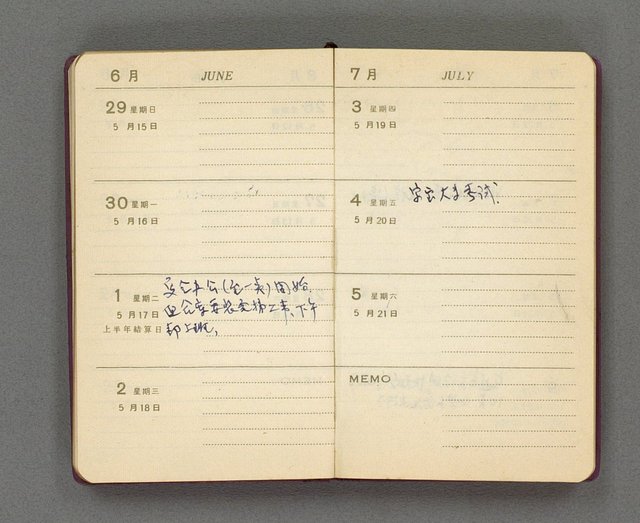 6 月 JUNE
29 星期日
5 月15日
30 星期一
5 月16日
1 星期二
5 月17日
上半年結算日
開始
下午
2 星期三
5 月18日
7 月 JULY
3 星期四
5 月19日
4 星期五
5 月20日
考試.
5 星期六
5 月21日
MEMO